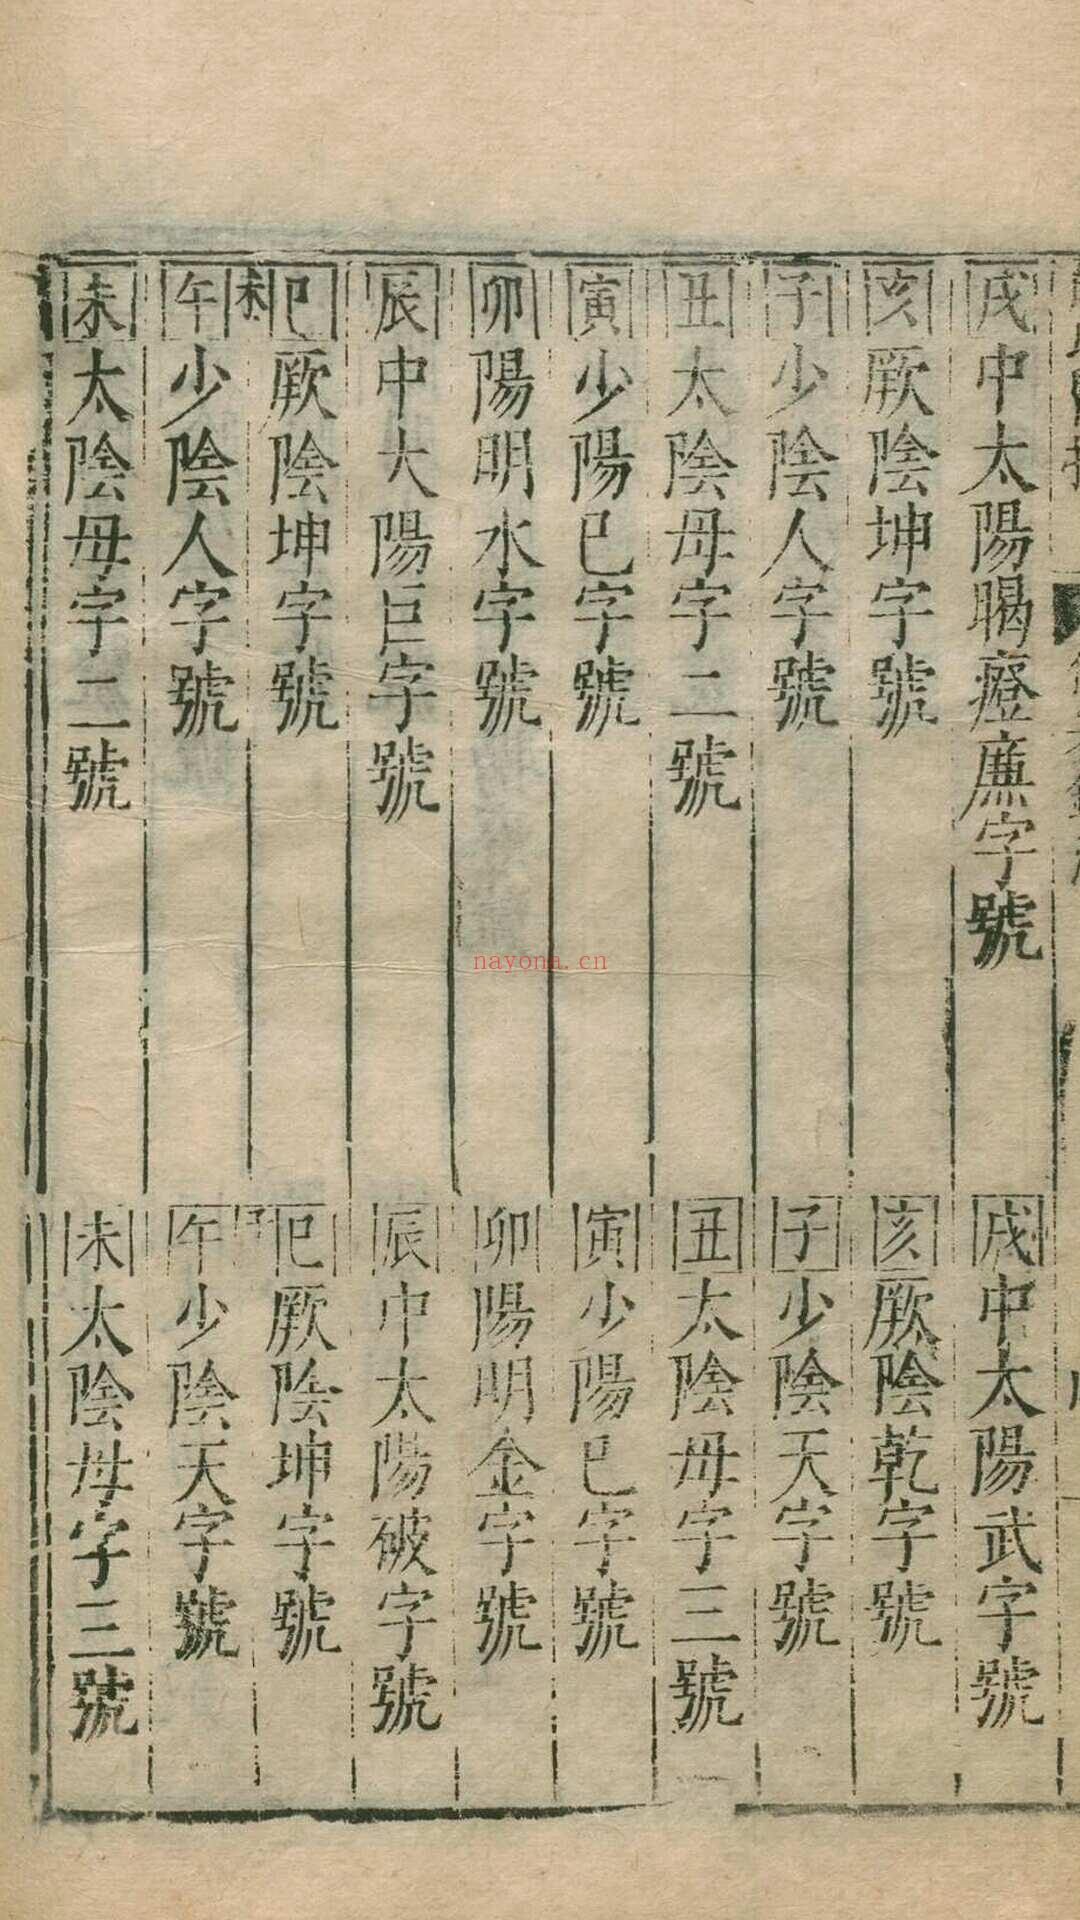 戌中太陽暍瘞廉字號
亥厥陰坤字號
子少陰人字號
丑太陰母字二號
寅少陽巳字號
卯陽明水字號
辰中大陽巨字號
巳厥陰坤字號
未
午少陰人字號
未太陰母字二號
戌中太陽武字號
亥厥陰乾字號
子少陰天字號
丑太陰母字三號
寅少陽巳字號
卯陽明金字號
辰中太陽破字號
巳厥陰坤字號
午少陰天字號
未太陰母字三號
nayona.cn